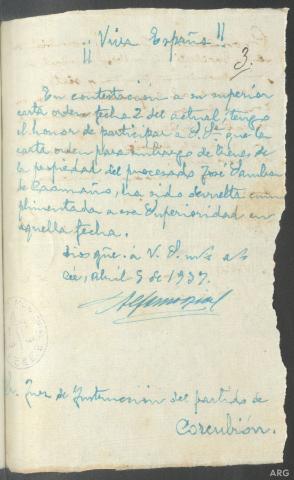 ¡¡ Viva España !!
3.
En contestacion a su superior
carta orden fecha 2 del actual, tengo
el honor de participar a V. Sª que la
carta orden para embargo de bienes de
la propiedad del procesado José
de Caamaño, ha sido devuelta cum
plimentada a esa Superioridad en
aquella fecha.
Dios gue. á V. S. ms. as.
Cée, Abril 5 de 1937.
Juez de Instruccion del partido de
Corcubión.
ARG